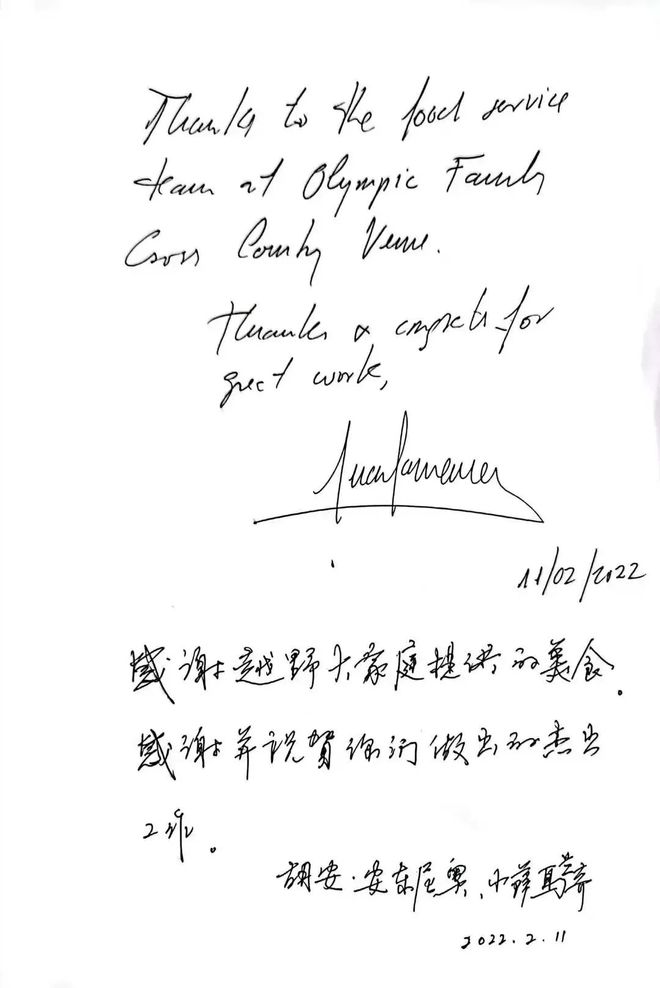 Thanks to the food service
team at Olympic Family
Cross Country Venue.
Thanks & congrats for
great work,
11/02/2022
感谢越野大家庭提供的美食.
感谢并祝贺你们做出的杰出
工作.
胡安·安东尼奥.小萨马兰奇
2022.2.11